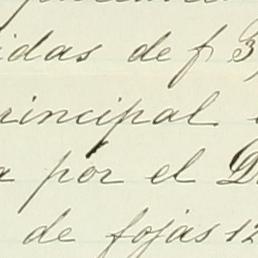 idas de f. 3,
rincipal
a por el D
de fojas 12